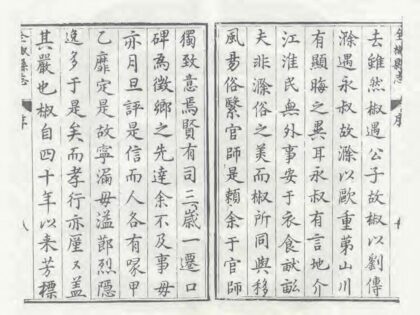 全椒縣志
序
去雖然椒遇公子故椒以劉傳
滁遇永叔故滁以歐重第山川
有顯晦之異耳永叔有言地介
江淮民無外事安于衣食畎畝
夫非滁俗之美而椒所同與移
風易俗繫官師是賴余于官師
獨致意焉賢有司三歲一遷口
碑為徵鄉之先達余不及事毋
亦月旦評是信而人各有喙甲
乙靡定是故寧漏毋溢節烈隱
逸多于是矣而孝行亦厪々蓋
其嚴也椒自四十年以來芳標
全椒縣志
序
八